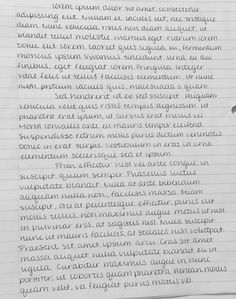 Lorem ipsum dolor sit amet, consectetur
adipiscing elit. Nullam et iaculis est, nec tristique
diam. Nunc vehicula risus non diam aliquet, ut
blandit tellus molestie. Vivamus eget rutrum lorem.
Donec est lorem, laoreet quis ligula eu, fermentum
rhoncus ipsum. Vivamus tincidunt urna eu dui
finibus, eget feugiat lorem fringilla. Integer
vitae felis ut tellus facilisis elementum. Ut nunc
nibh, pretium iaculis quis, malesuada a quam.
Sed hendrerit id ex sed suscipit. Aliquam
vehicula velit quis risus tempus dignissim. Ut
pharetra erat ipsum, ut cursus erat rhoncus ut.
Morbi convallis ante eu mauris tempus eleifend.
Suspendisse rutrum mollis purus dictum venenatis.
Donec in erat turpis. Vestibulum in erat id urna
elementum scelerisque sed et ipsum.
Proin efficitur nisl vel ante congue, in
suscipit quam semper. Phasellus luctus
vulputate blandit. Nulla at ante bibendum,
aliquam nulla non, facilisis massa. Etiam
suscipit, orci at pellentesque efficitur, purus elit
mollis tellus, non maximus augue metus ut nisl.
In pulvinar eros, at sagittis nisl. Nulla suscipit
nunc ut mauris facilisis, at sodales nisl volutpat.
Praesent sit amet ipsum arcu. Cras sit amet
massa aliquet, nulla vulputate, blandit eu in
ligula. Curabitur maximus augue in nunc
porttitor, ut lobortis quam pharetra. Aenean mollis
quam velit, vel feugiat purus mattis vel.